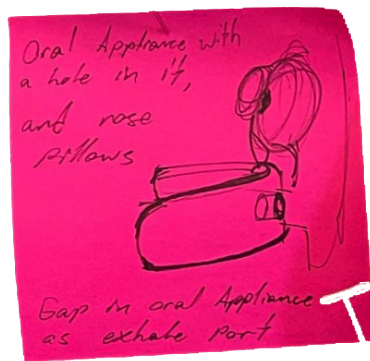 Oral Appliance with
a hole in it,
and nose
pillows
Gap in oral Appliance
as exhale port